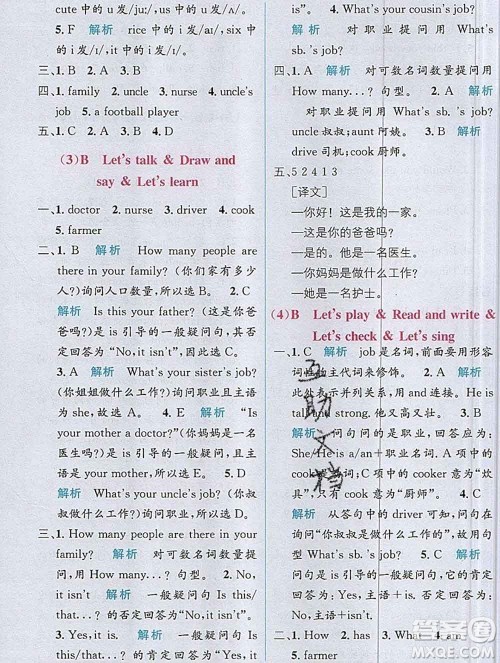 cute 中的 u 发/juː/，us 中的 u 发/ʌ/。
5. F 解析 rice 中的 i 发/aɪ/，six
中的 i 发/ɪ/，it 中的 i 发/ɪ/。
三、1. B 2. A 3. B
四、1. family 2. uncle 3. nurse 4. uncle's
job 5. a football player
五、1. C 2. B 3. A 4. D
(3) B Let's talk & Draw and
say & Let's learn
一、1. doctor 2. nurse 3. driver 4. cook
5. farmer
二、1. B 解析 How many people are
there in your family?（你们家有多
少人?）询问人口数量,所以选 B。2. C
解析 Is this your father?（这是你爸
爸吗?）是 is 引导的一般疑问句,其否定
回答为“No, it isn't”,故选 C。
3. A 解析 What's your sister's job?
（你姐姐做什么工作?）询问职业且主语
为 she,故选 A。4. B 解析 “Is
your mother a doctor?”（你妈妈是一
名医生吗?）是 is 引导的一般疑问句,主语
是 your mother,所以选 B。5. A
解析 What's your uncle's job?（你叔
叔做什么工作?）询问职业,故选 A。
三、1. How many people are there in your
family? 解析 对可数名词数量提
问,用 How many...? 句型。2. No,
it isn't. 解析 该问句是 is 引导的一
般疑问句,Is this/that...? 的否定回答
为“No, it isn't.”
3. Yes, it is. 解析 该问句是 is 引导
的一般疑问句,Is this/that...? 的肯定回答
sb. 's job? 5. What's your cousin's job?
解析 对职业提问用 What's/What is
sb. 's job?
四、1. B 解析 对可数名词数量提问用
How many...? 句型。2. B 3. A 4. A
解析 对职业提问用 What's sb. 's job?
uncle 叔叔;aunt 阿姨。5. B 解析
driver 司机;cook 厨师。
五、5 2 4 1 3
[译文]
—你好! 这是我的一家。
—这是你的爸爸吗?
—是的。他是一名医生。
—你妈妈是做什么工作?
—她是一名护士。
(4) B Let's play & Read and write &
Let's check & Let's sing
一、1. C 解析 job 是名词,前面要用形容
词性的主代词来修饰。2. A 解析
此处表示并列关系,用 and 连接。He is
tall and strong. 他又高又壮。3. B
解析 问句问的是职业,回答应为:
She/He is a/an+职业名词.4. C
解析 四个选项中的 cooker 意为“炊
具”,只有 cook 意为“厨师”。5. C
解析 从答句中的 driver 可知,问句应
询问“你叔叔是做什么的”,询问职业用
What's sb. 's job? 句型。6. A 解析
该句是 is 引导的一般疑问句,否定回答为:
No, 主语+isn't.
二、1. How 2. What 3. and 4. an
5. farmer
互助文档
答案
MXQE.COM